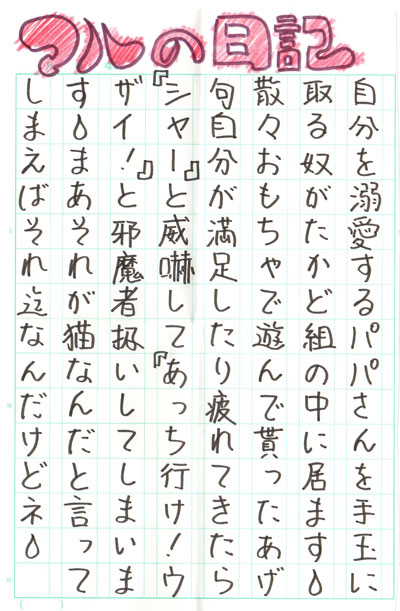 マルの日記
自分を溺愛するパパさんを手玉に
取る奴がたかど組の中に居ます。
散々おもちゃで遊んで貰ったあげ
句自分が満足したり疲れてきたら
『シャー』と威嚇して『あっち行け！ウ
ザイ！』と邪魔者扱いしてしまいま
す。まあそれが猫なんだと言って
しまえばそれ迄なんだけどネ。